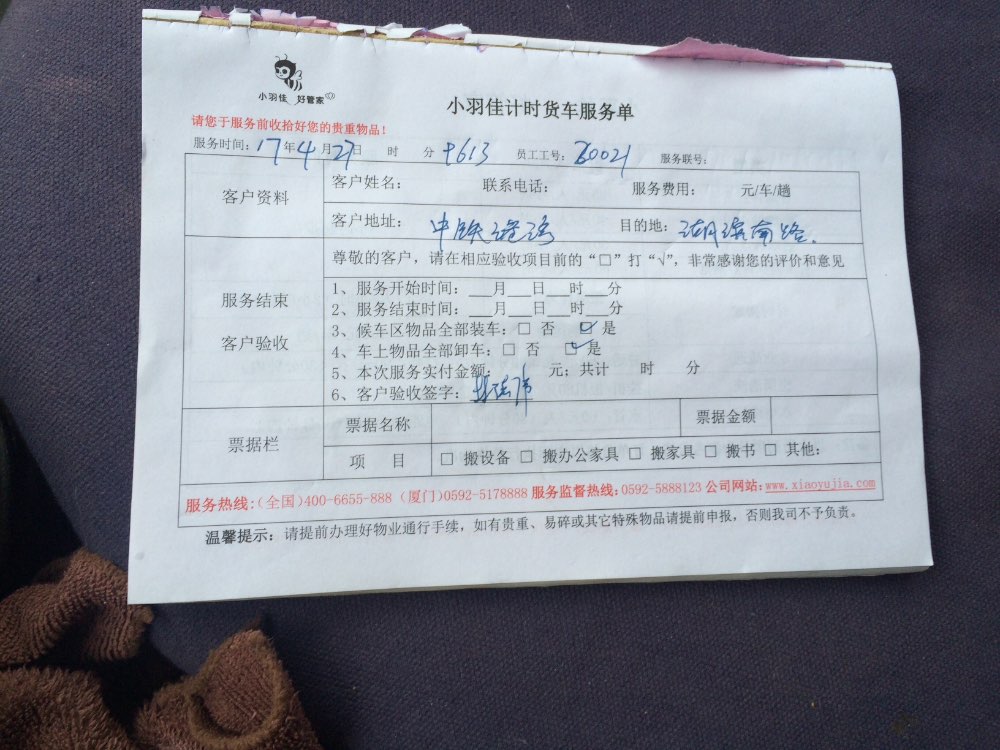 小羽佳 好管家
小羽佳计时货车服务单
请您于服务前收拾好您的贵重物品！
服务时间：17年4月27日 时 分 9613 员工工号：60021 服务联号：
客户资料
客户姓名： 联系电话： 服务费用： 元/车/趟
客户地址：中铁 目的地：湖滨南路.
服务结束
客户验收
尊敬的客户，请在相应验收项目前的“□”打“√”，非常感谢您的评价和意见
1、服务开始时间：___月___日___时___分
2、服务结束时间：___月___日___时___分
3、候车区物品全部装车：□ 否 ☑ 是
4、车上物品全部卸车：□ 否 ☑ 是
5、本次服务实付金额： 元；共计 时 分
6、客户验收签字：
票据栏
票据名称 票据金额
项 目 □ 搬设备 □ 搬办公家具 □ 搬家具 □ 搬书 □ 其他：
服务热线：(全国)400-6655-888 (厦门)0592-5178888 服务监督热线：0592-5888123 公司网站：www.xiaoyujia.com
温馨提示：请提前办理好物业通行手续，如有贵重、易碎或其它特殊物品请提前申报，否则我司不予负责。